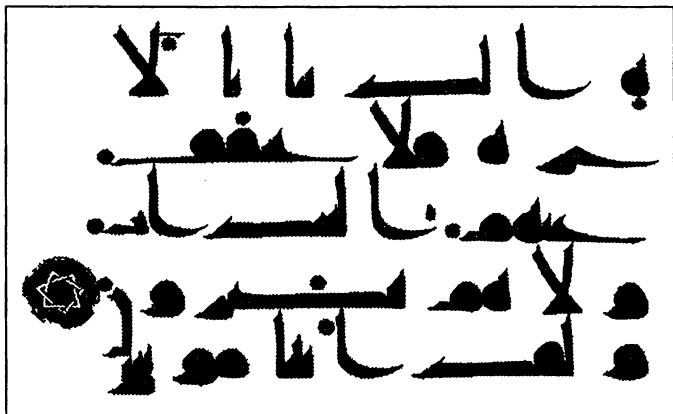 ه الدنيا بالا
خره فلا يخفف
عنهم العذاب
و لا هم ينصرون
و لقد اتينا موسى